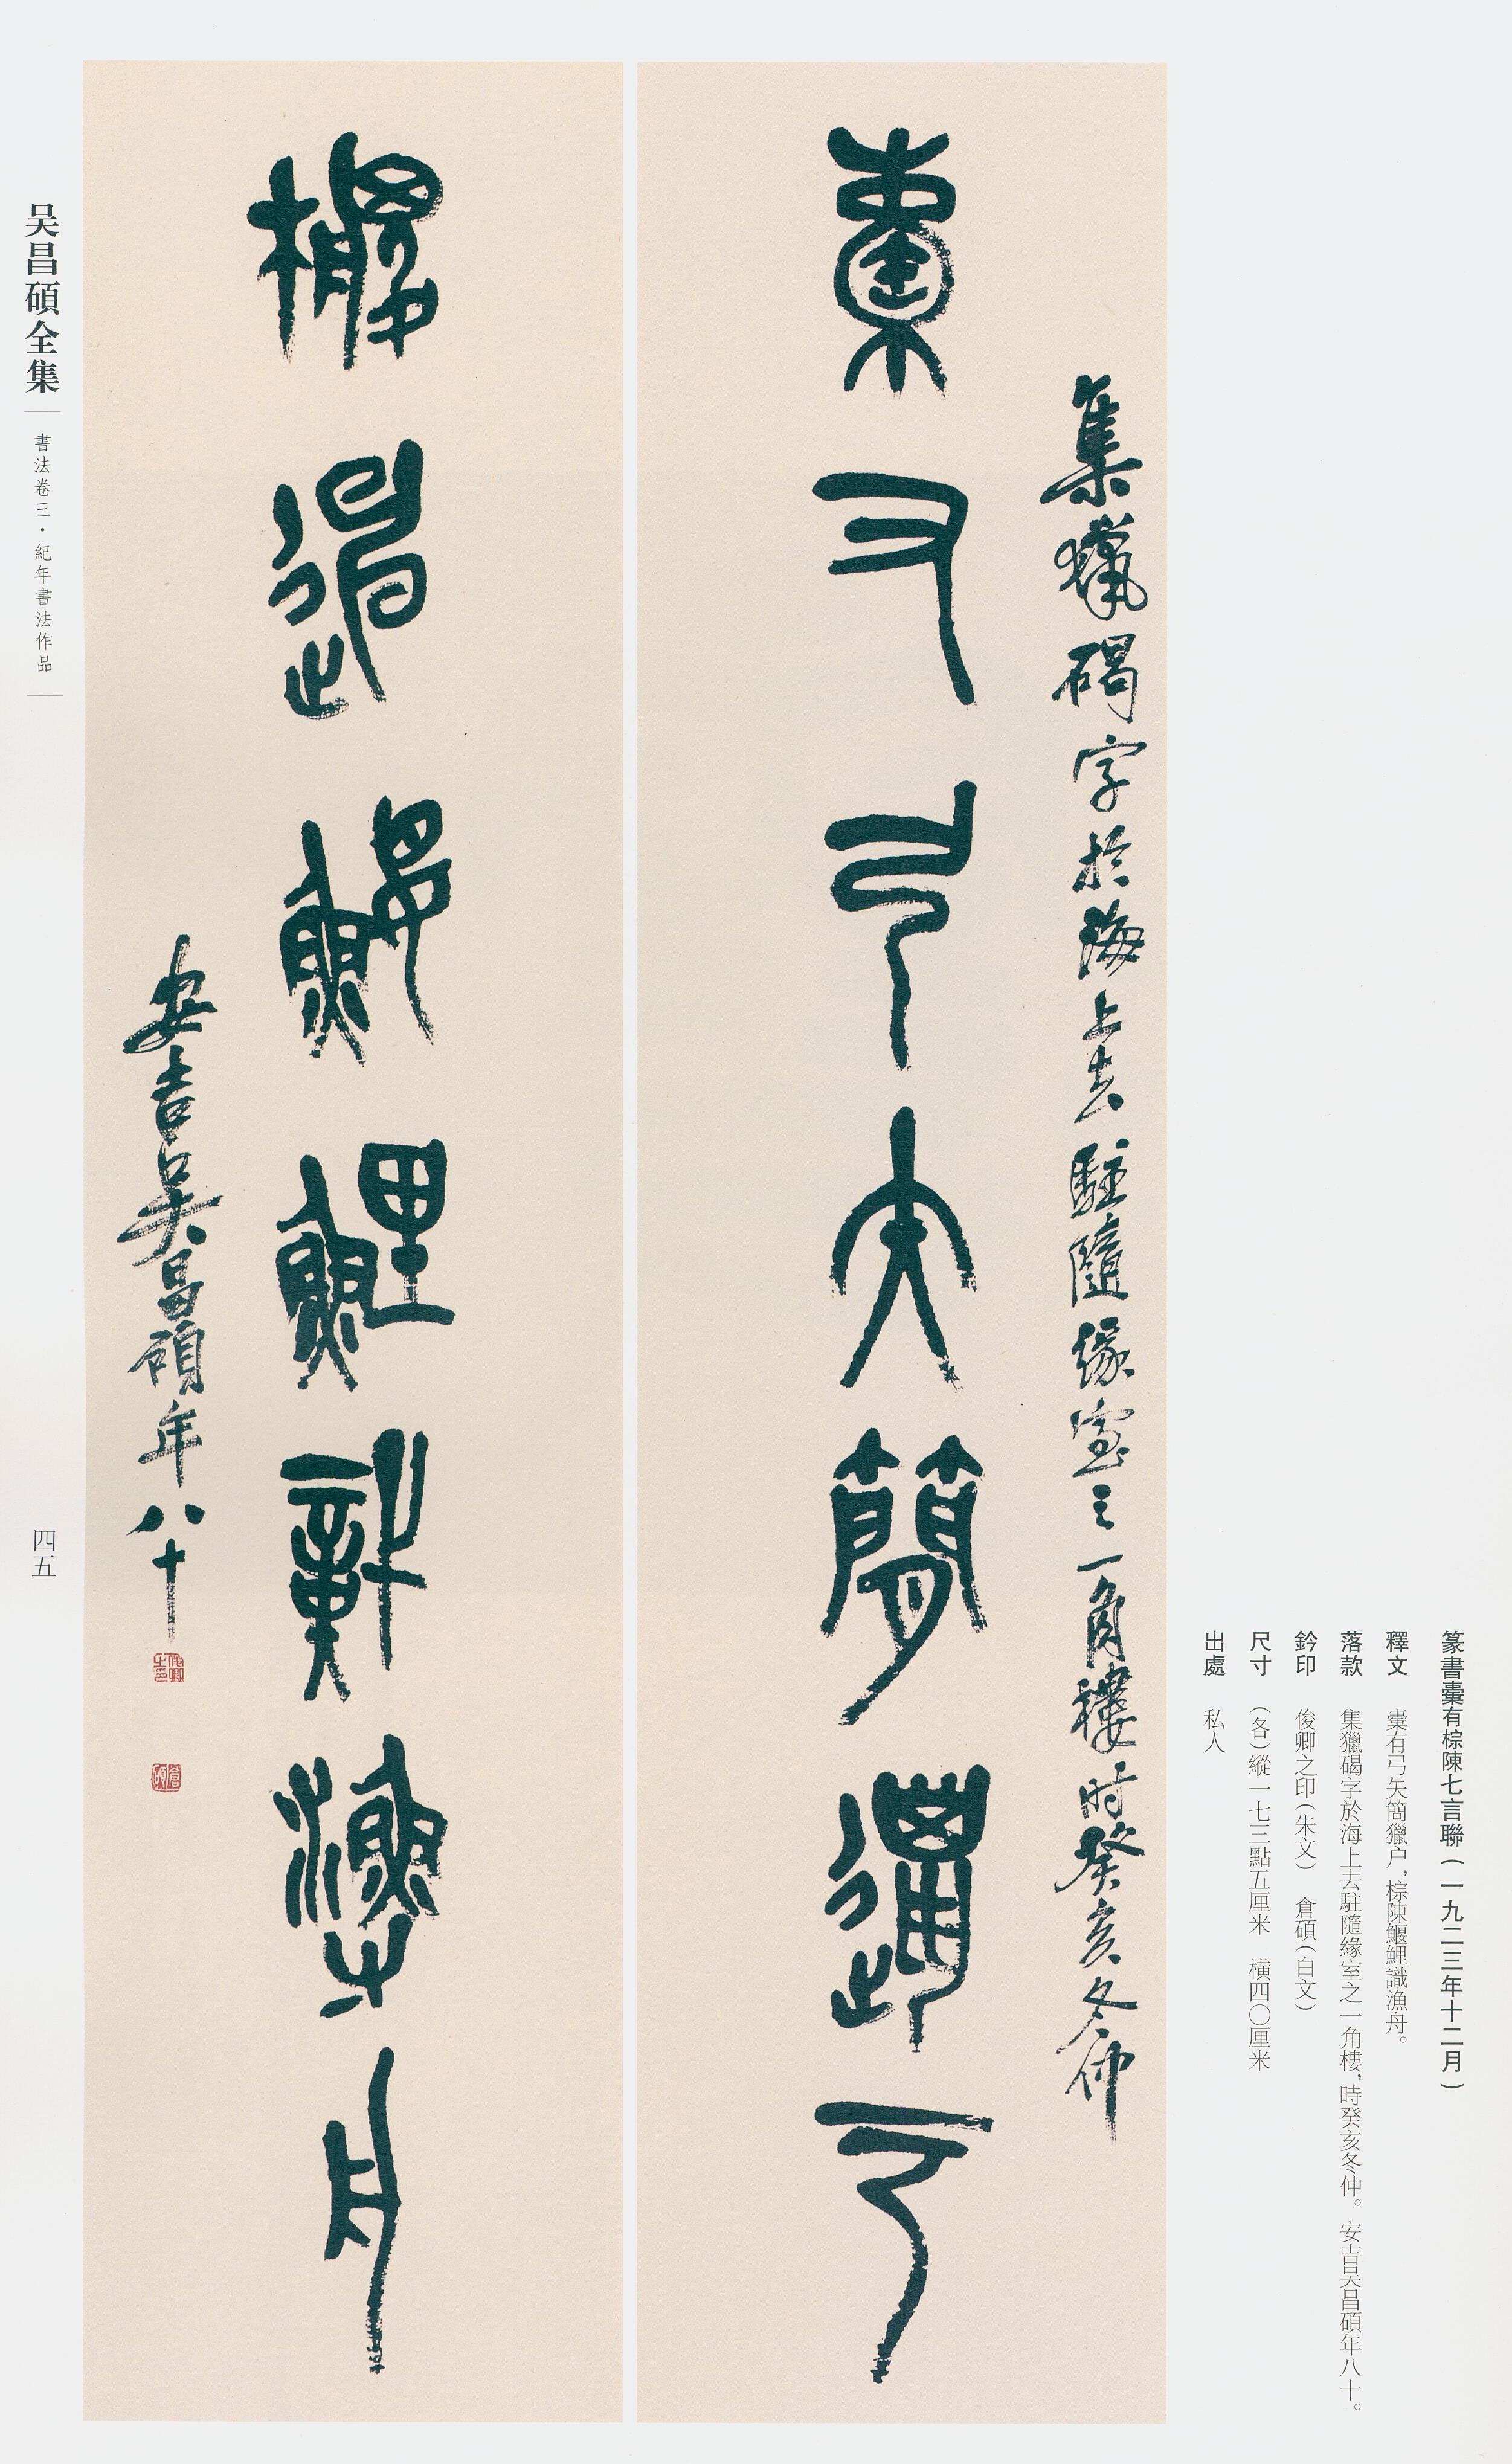 篆書櫜有棕陳七言聯(一九二三年十二月)
釋文 櫜有弓矢簡獵户,棕陳鰋鯉識漁舟。
落款 集獵碣字於海上去駐隨緣室之一角樓,時癸亥冬仲。安吉吴昌碩年八十。
鈐印 俊卿之印(朱文) 倉碩(白文)
尺寸 (各)縱一七三點五厘米 橫四〇厘米
出處 私人
集獵碣字於海上去駐隨緣室之一角樓時癸亥冬仲
櫜有弓矢簡獵户
棕陳鰋鯉識漁舟
安吉吴昌碩年八十
俊卿之印
倉碩
吴昌碩全集
書法卷三·紀年書法作品
四五